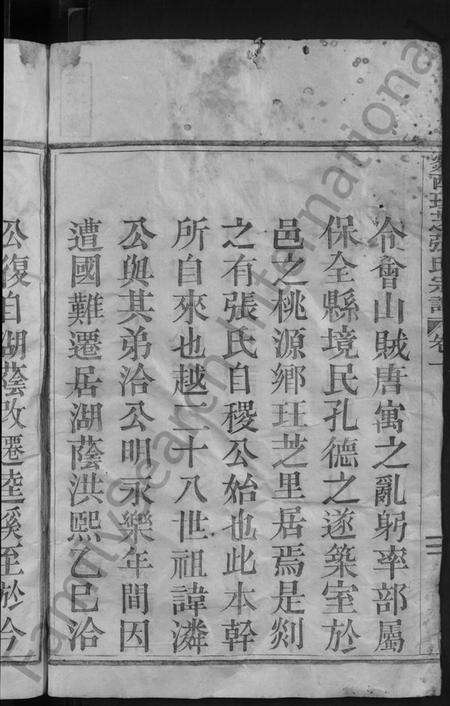 令會山賊唐寓之亂躬率部屬
保全縣境民孔德之遂築室於
邑之桃源鄉玨芝里居焉是剡
之有張氏自稷公始也此本幹
所自來也越二十八世祖諱潾
公與其弟洽公明永樂年間因
遭國難遷居湖蔭洪熙乙巳洽
公復自湖蔭改遷陸溪至於今
張氏宗譜
卷一
FamilySearch International